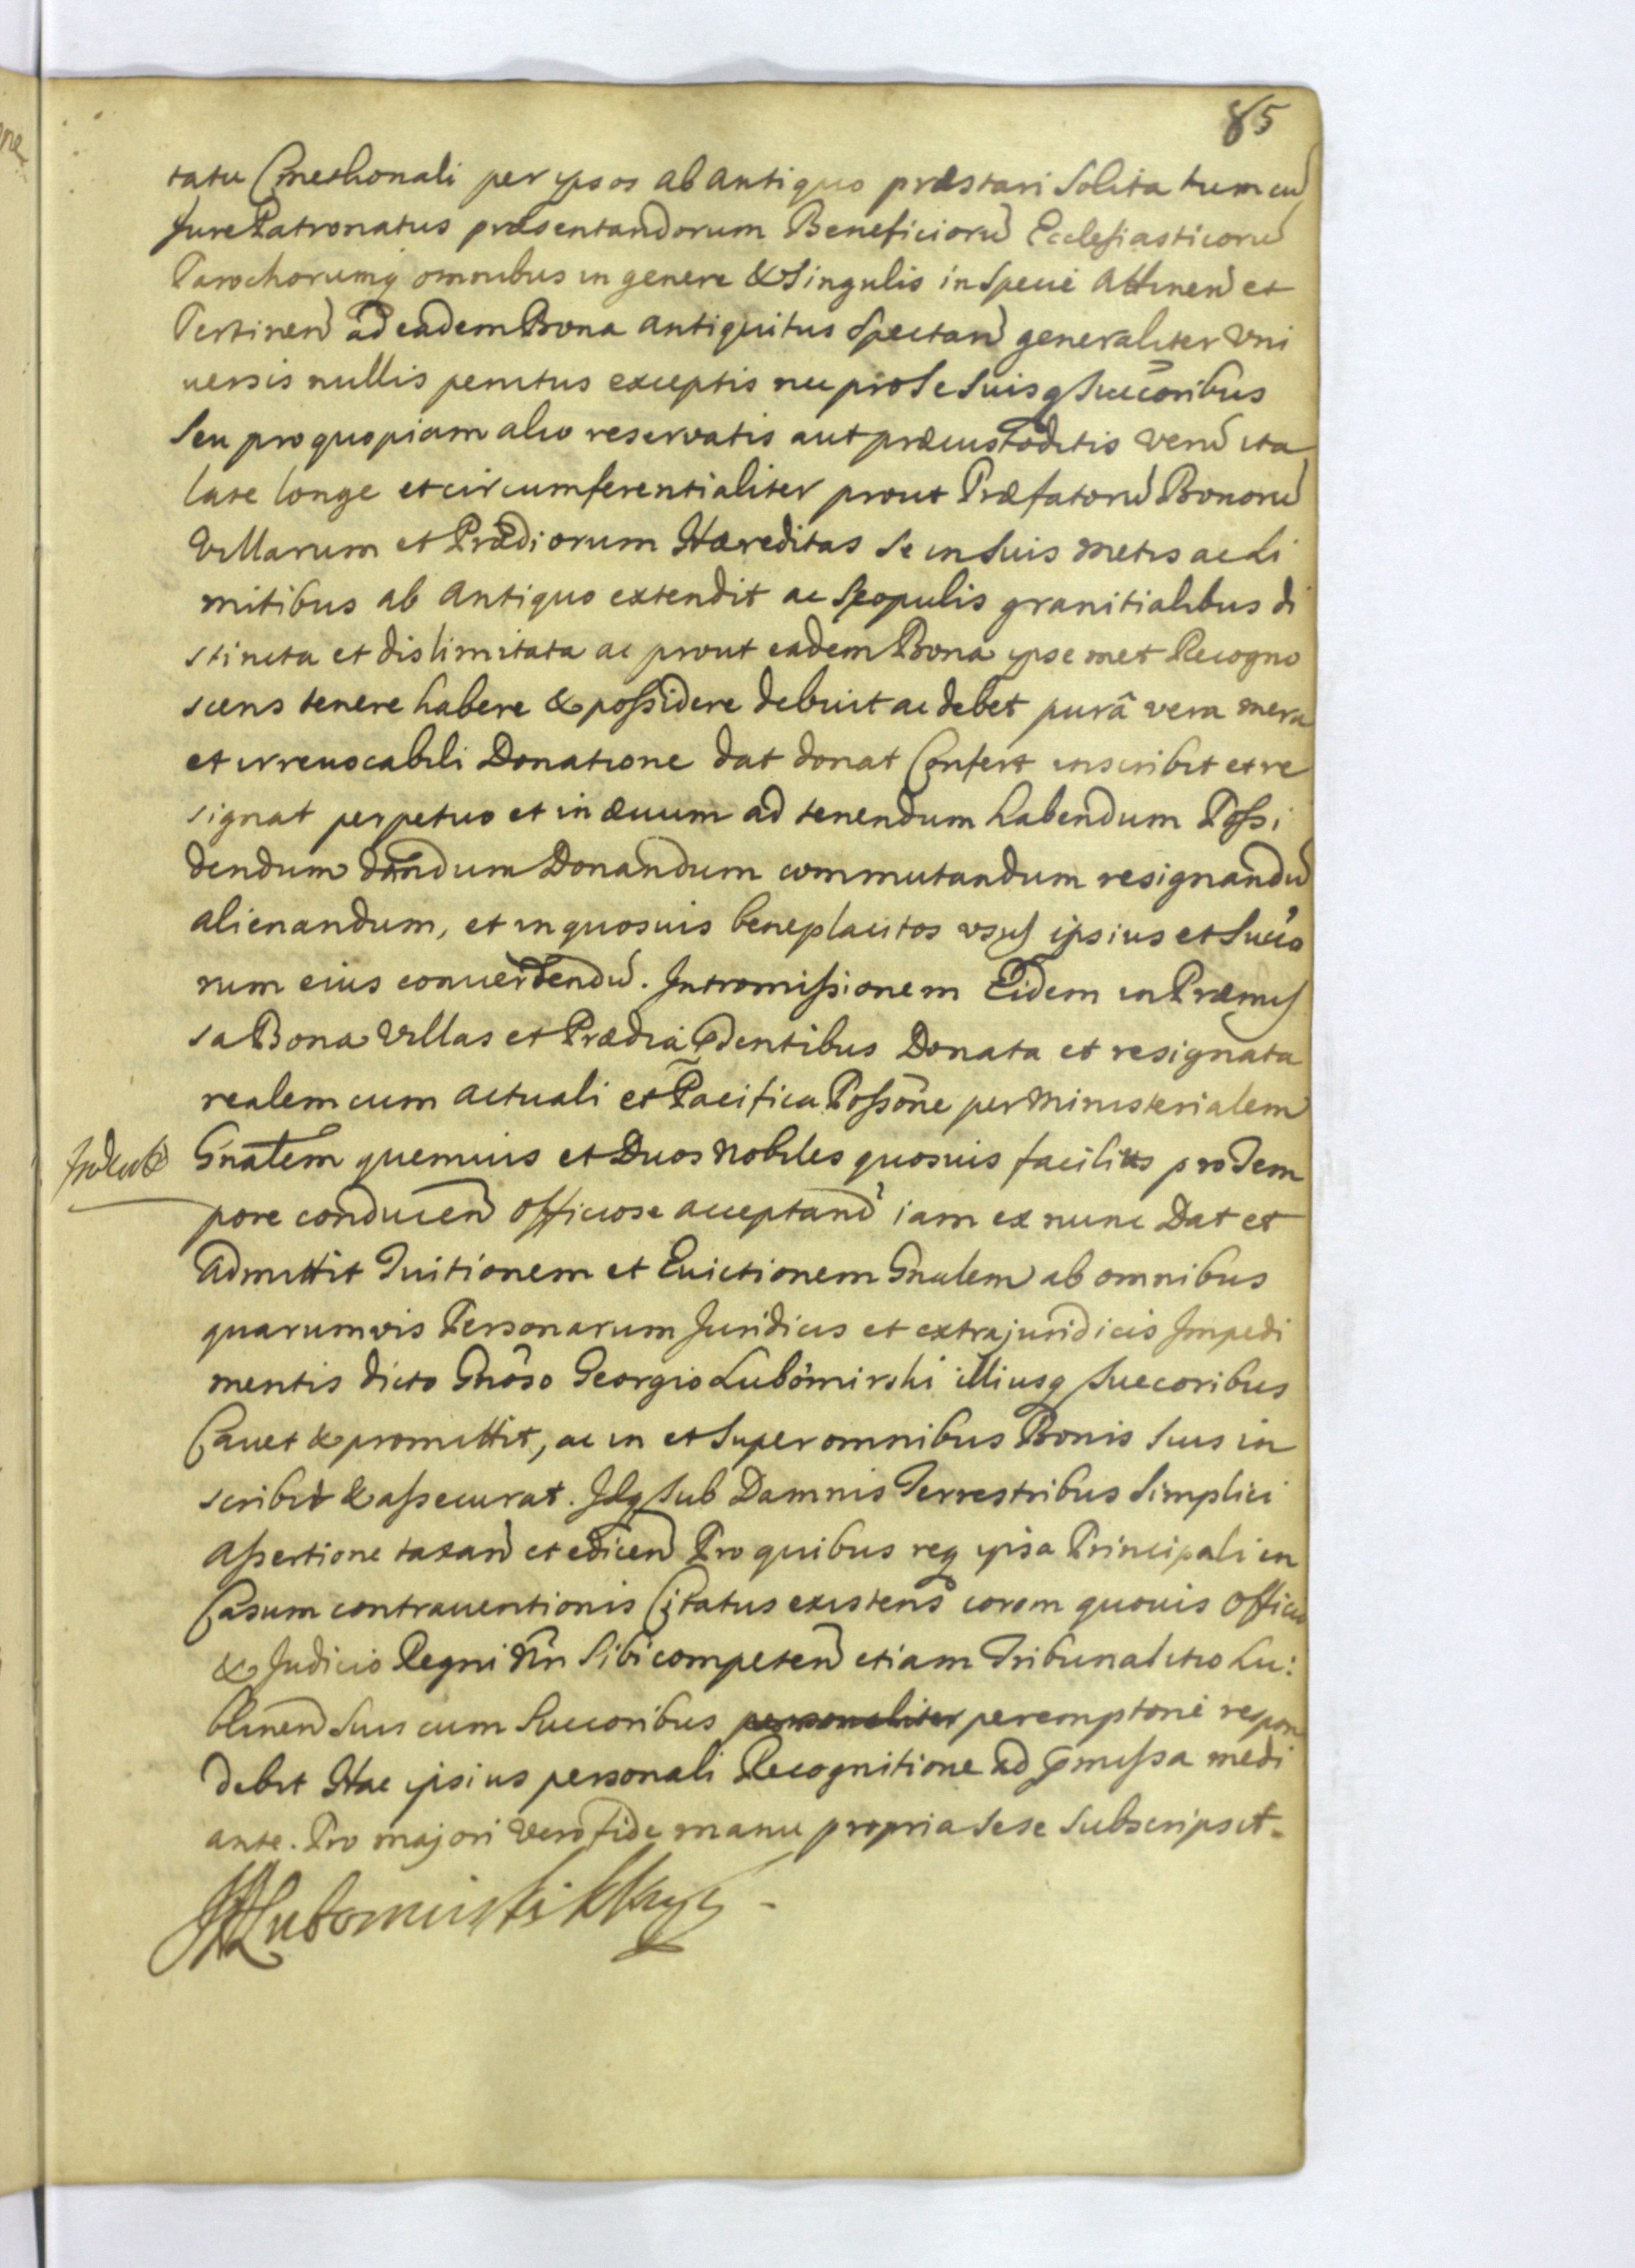 85
tatu Cmethonali per ipsos ab antiquo præstari Solita tum cu
Jure Patronatus præsentandorum Beneficioru Ecclesiasticoru
Parochorumq omnibus in genere & Singulis in Specie Attinen et
Pertinen ad eadem Bona antiquitus Spectan generaliter Uni
uersis nullis penitus exceptis nec pro Se Suisq Succoribus
Seu pro quopiam alio reservatis aut præcustoditis Veru ita
late longe et circumferentialiter prout Præfatoru Bonoru
Villarum et Prædiorum Hæreditas Se in Suis metis ac Li
mitibus ab Antiquo extendit ac Scopulis granitialibus di
stincta et dislimitata ac prout eadem Bona ipse met Recogno
scens tenere habere & possidere debuit ac debet purâ vera mera
et irreuocabili Donatione dat donat Confert inscribit et re
signat perpetuo et in æuum ad tenendum habendum Possi
dendum dandum Donandum commutandum resignandu
alienandum, et in quosuis beneplacitos usus ipsius et Succo
rum eius conuertendu. Intromissionem Eidem in Præmis
sa Bona Villas et Prædia pdentibus Donata et resignata
realem cum actuali et Pacifica Possone per Ministerialem
Gnalem quemuis et Duos Nobiles quosuis facilius pro Tem
pore conducen Officiose acceptand iam ex nunc Dat et
Admittit Tuitionem et Euictionem Gnalem ab omnibus
quarumvis Personarum Juridicis et extrajuridicis Impedi
mentis dicto Gnoso Georgio Lubomirski illiusq Succoribus
Cauet & promittit, ac in et Super omnibus Bonis Suis in
scribit & assecurat. Idq Sub Damnis Terrestribus Simplici
Assertione taxan et edicen Pro quibus req ipsa Principali in
Casum contrauentionis Citatus existens coram quouis Officio
& Judicio Regni Sibi competen etiam Tribunalitio Lu:
blinen Suis cum Succoribus personaliter peremptorie respon
debit Hac ipsius personali Recognitione ad pmissa medi
ante. Pro majori Vero fide manu propria Sese Subscripsit.
Lubomirski